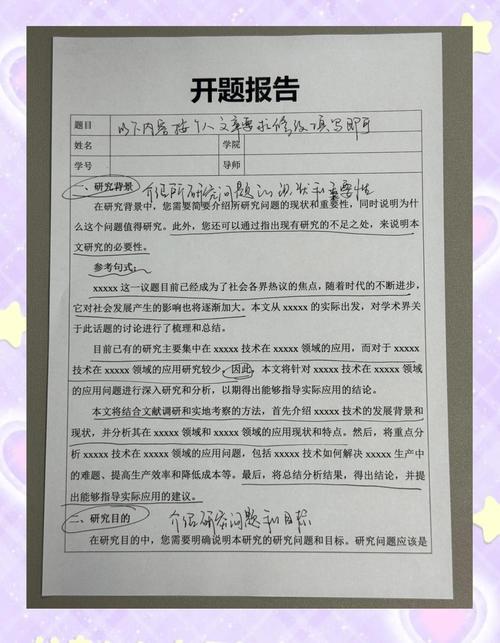 开题报告
题目 以下内容按个人文章要求修改填写即可
姓名 学院
学号 导师
一、研究背景 介绍所研究问题的现状和重要性
在研究背景中，您需要简要介绍所研究问题的现状和重要性，同时说明为什
么这个问题值得研究。此外，您还可以通过指出现有研究的不足之处，来说明本
文研究的必要性。
参考句式：
xxxxx 这一议题目前已经成为了社会各界热议的焦点，随着时代的不断进步，
它对社会发展产生的影响也将逐渐加大。本文从 xxxxx 的实际出发，对学术界关
于此话题的讨论进行了梳理和总结。
目前已有的研究主要集中在 xxxxx 技术在 xxxxx 领域的应用，而对于 xxxxx
技术在 xxxxx 领域的应用研究较少，因此，本文将针对 xxxxx 技术在 xxxxx 领域
的应用问题进行深入研究和分析，以期得出能够指导实际应用的结论。
本文将结合文献调研和实地考察的方法，首先介绍 xxxxx 技术的发展背景和
现状，并分析其在 xxxxx 领域和 xxxxx 领域的应用现状和特点。然后，将重点分
析 xxxxx 技术在 xxxxx 领域的应用问题，包括 xxxxx 技术如何解决 xxxxx 生产中
的难题、提高生产效率和降低成本等。最后，将总结分析结果，得出结论，并提
出能够指导实际应用的建议。
二、研究目的 介绍研究问题和目标
在研究目的中，您需要明确说明本研究的研究问题和目标。研究问题应该是